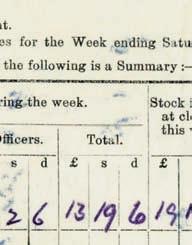 nt.
es for the Week ending Satu
the following is a Summary :—
ring the week.
Stock i
at cl
this
Officers.
Total.
s d £ s d £ s
2 6 13 19 6 19